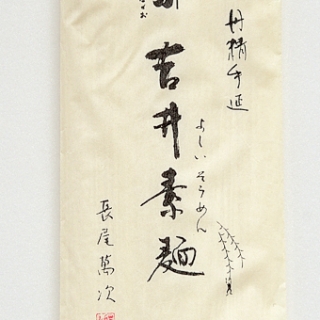 丹精手延
吉井素麺
よしいそうめん
長尾萬次